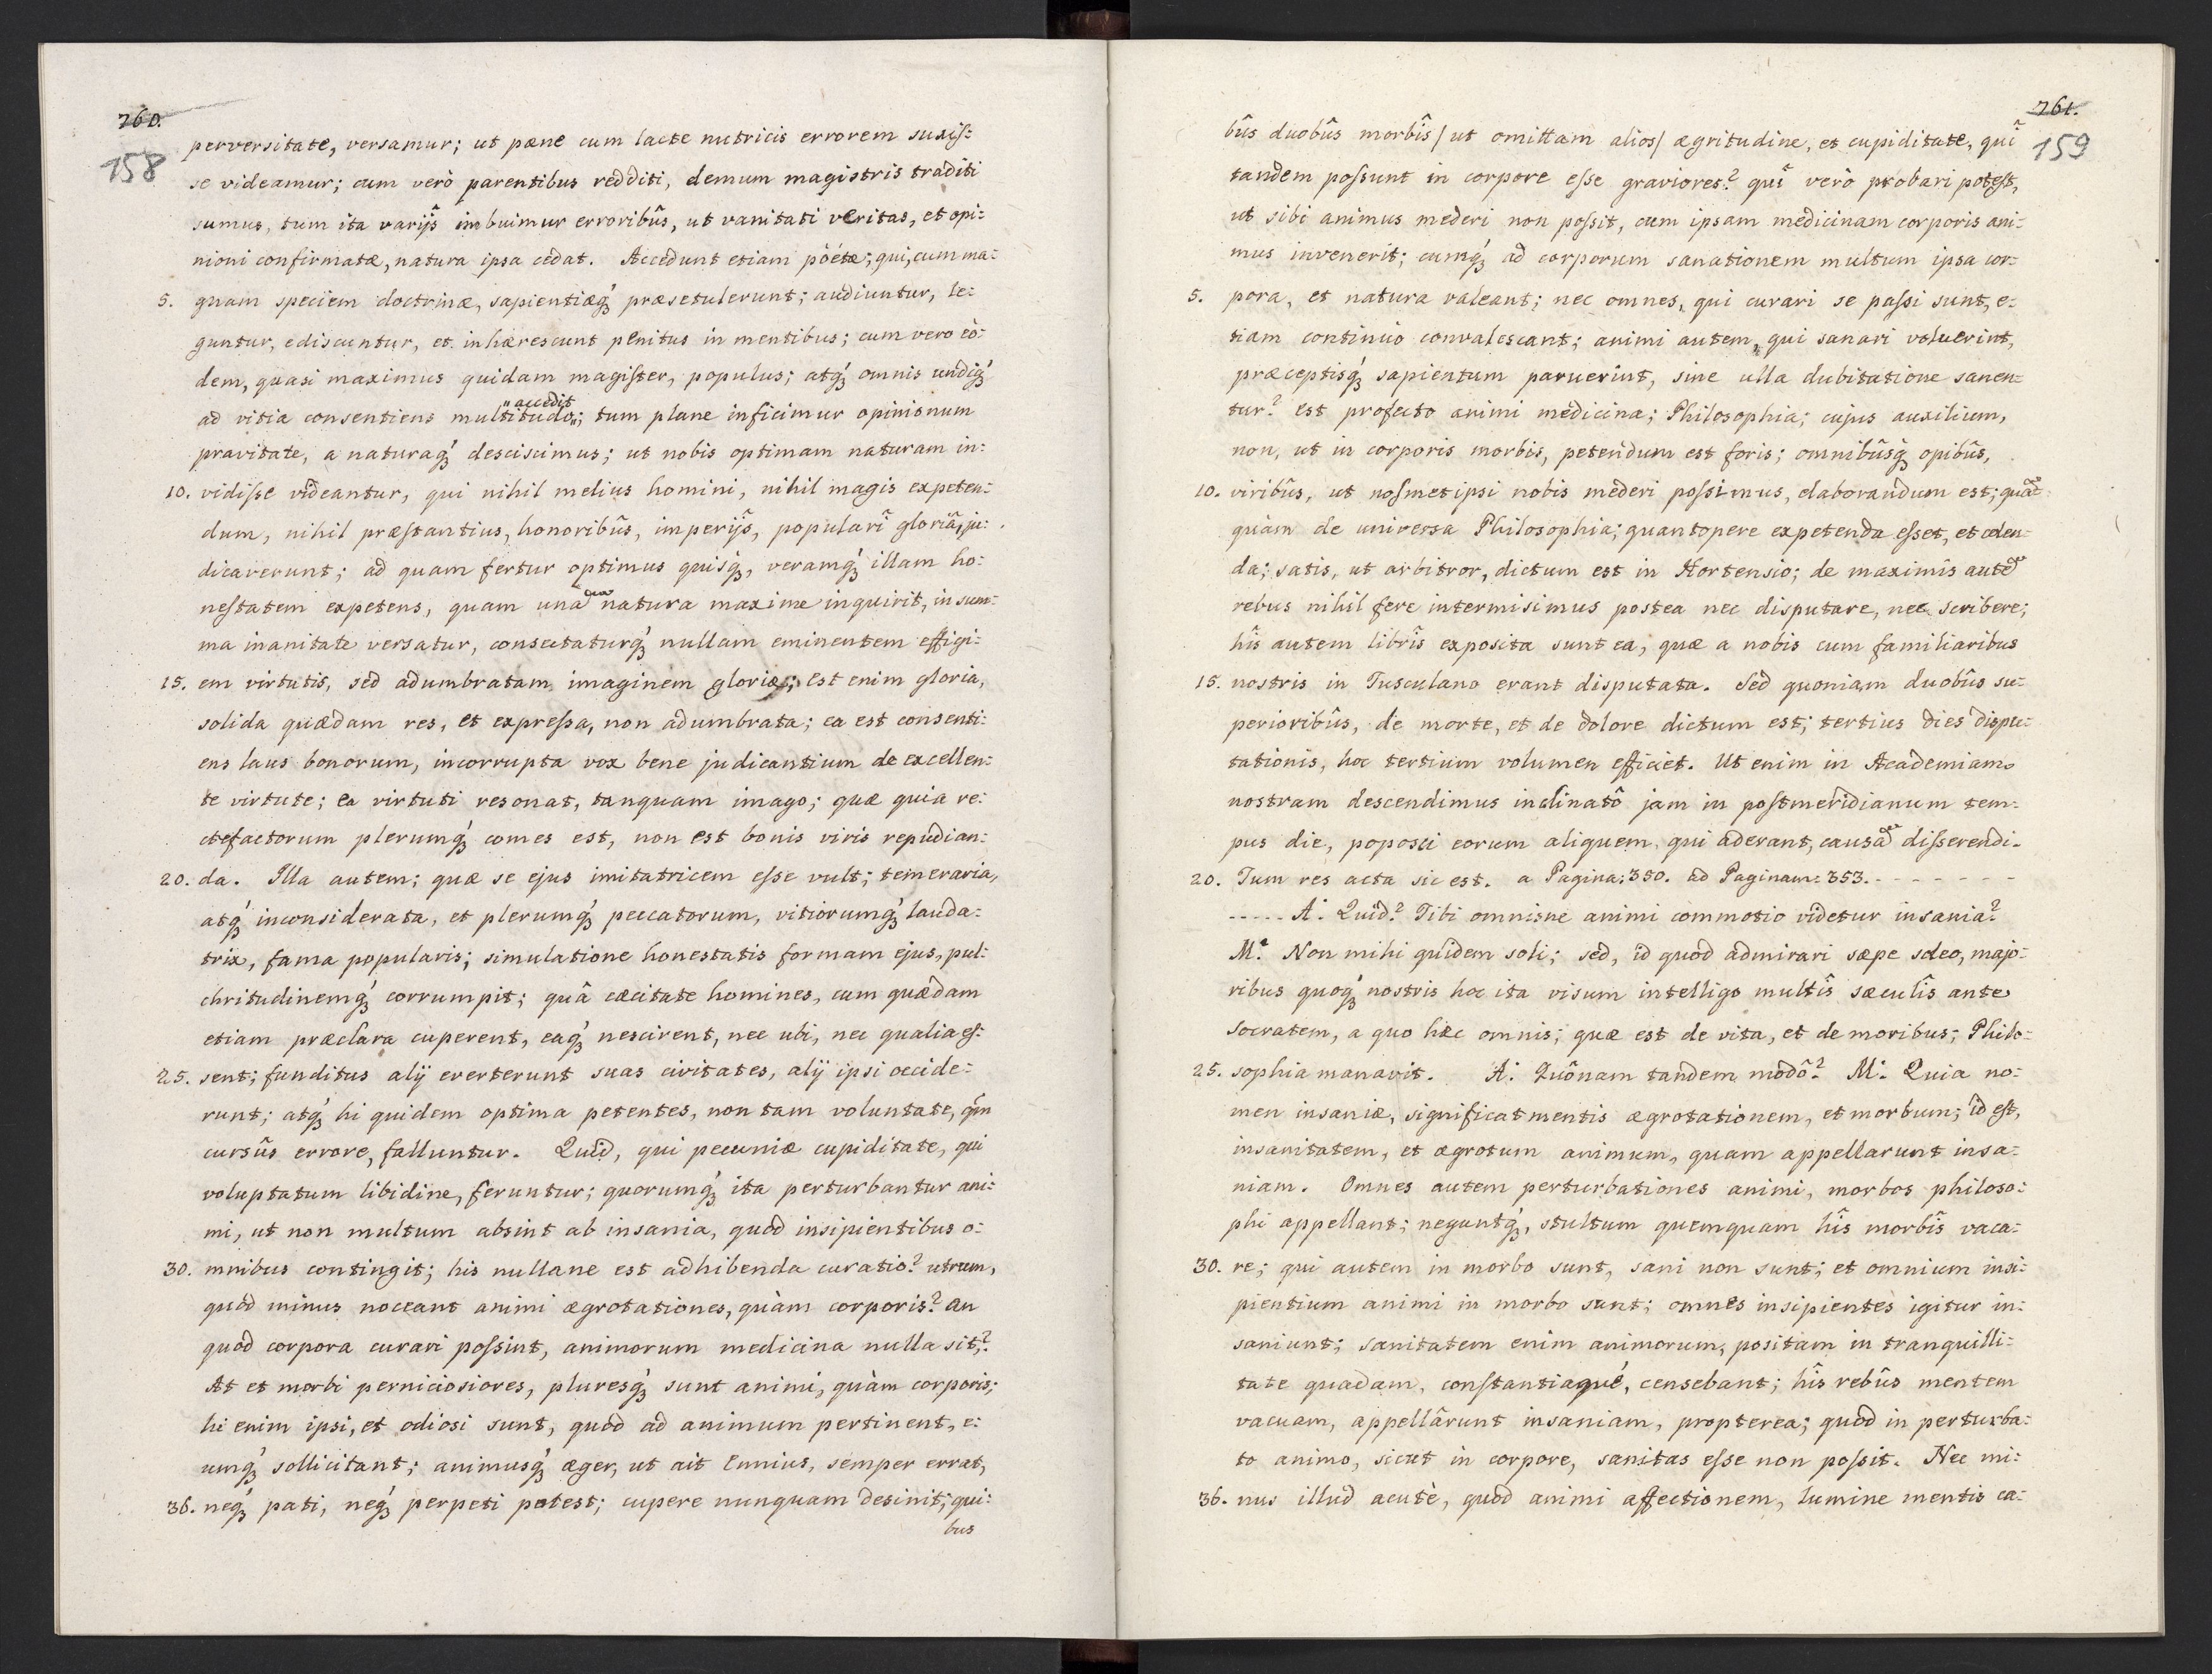 760.
158
perversitate, versamur; ut pæne cum lacte nutricis errorem suxis:
se videamur; cum verò parentibus redditi, demum magistris traditi
sumus, tum ita varijs̃ imbuimur erroribûs, ut vanitati veritas, et opi:
nioni confirmatæ, natura ipsa cedat. Accedunt etiam pòétæ; qui, cum ma:
5. gnam speciem doctrinæ, sapientiæq́ꝫ præsetulerunt; audiuntur, le:
guntur, ediscuntur, et inhærescunt penitus in mentibus; cum vero eò:
dem, quasi maximus quidam magister, populus; atq́ꝫ omnis undiq́ꝫ
"accedit
ad vitia consentiens multitudo„; tum plane inficimur opinionum
pravitate, a naturaq́ꝫ desciscimus; ut nobis optimam naturam in:
10. vidisse videantur, qui nihil melius homini, nihil magis expeten:
dum, nihil præstantius, honoribûs, imperijs̃, popularî gloriâ, ju:
dicaverunt; ad quam fertur optimus quisq́ꝫ, veramq́ꝫ illam ho:
nestatem expetens, quam una natura maxime inquirit, in sum:
ma inanitate versatur, consectaturq́ꝫ nullam eminentem effigi:
15. em virtutis, sed adumbratam imaginem gloriæ; est enim gloria,
solida quædam res, et expressa, non adumbrata; ea est consenti:
ens laus bonorum, incorrupta vox bene judicantium de excellen:
te virtute; ea virtuti resonat, tanquam imago; quæ quia re:
ctefactorum plerumq́ꝫ comes est, non est bonis viris repudian:
20. da. Illa autem; quæ se ejus imitatricem esse vult; temeraria,
atq́ꝫ inconsiderata, et plerumq́ꝫ peccatorum, vitiorumq́ꝫ lauda:
trix, fama popularis; simulatione honestatis formam ejus, pul:
chritudinemq́ꝫ corrumpit; quâ cæcitate homines, cum quædam
etiam præclara cuperent, eaq́ꝫ nescirent, nec ubi, nec qualia es:
25. sent; funditus alij everterunt suas civitates, alij ipsi occide:
runt; atq́ꝫ hi quidem optima petentes, non tam voluntate, qm̃
cursûs errore, falluntur. Quid, qui pecuniæ cupiditate, qui
voluptatum libidine, feruntur; quorumq́ꝫ ita perturbantur ani:
mi, ut non multum absint ab insania, quod insipientibus o:
30. mnibus contingit; his nullane est adhibenda curatio? utrum,
quòd minus noceant animi ægrotationes, quàm corporis? an
quòd corpora curari possint, animorum medicina nulla sit;?
At et morbi perniciosiores, pluresq́ꝫ sunt animi, quàm corporis;
hi enim ipsi, et odiosi sunt, quòd ad animum pertinent, e:
umq́ꝫ sollicitant; animusq́ꝫ æger, ut ait Ennius, semper errat,
36. neq́ꝫ pati, neq́ꝫ perpeti potest; cupere nunquam desinit; qui:
bus
761.
159
bûs duobûs morbîs / ut omittam alios / ægritudine, et cupiditate, quî
tandem possunt in corpore esse graviores? quî verò probari potest,
ut sibi animus mederi non possit, cum ipsam medicinam corporis ani:
mus invenerit; cumq́ꝫ ad corporum sanationem multum ipsa cor:
5. pora, et natura valeant; nec omnes, qui curari se passi sunt, e:
tiam continuò convalescant; animi autem, qui sanari voluerint,
præceptisq́ꝫ sapientum paruerint, sine ulla dubitatione sanen:
tur? est profecto animi medicina; Philosophia; cujus auxilium,
non, ut in corporis morbis, petendum est foris; omnibûsq́ꝫ opibûs,
10. viribûs, ut nosmetipsi nobis mederi possimus, elaborandum est; quãʳ
quàm de universa Philosophia; quantopere expetenda esset, et colen:
da; satis, ut arbitror, dictum est in Hortensio; de maximis autẽ
rebus nihil fere intermisimus postea nec disputare, nec scribere;
hîs autem librîs exposita sunt ea, quæ a nobis cum familiaribus
15. nostris in Tusculano erant disputata. Sed quoniam duobûs su:
perioribûs, de morte, et de dolore dictum est; tertius dies dispu:
tationis, hoc tertium volumen efficiet. Ut enim in Academiam
nostram descendimus inclinatô jam in postmeridianum tem:
pus die, poposci eorum aliquem, qui aderant, causã disserendi.
20. Tum res acta sic est. a Pagina: 350. ad Paginam: 353. - - - - - - -
- - - - - A: Quid? Tibi omnisne animi commotio videtur insania?
M: Non mihi quidem soli; sed, id quod admirari sæpe soleo, majo:
ribus quoq́ꝫ nostris hoc ita visum intelligo multîs sæculîs ante
Socratem, a quo hæc omnis; quæ est de vita, et de moribus; Philo:
25. sophia manavit. A: Quônam tandem modô? M: Quia no:
men insaniæ, significat mentis ægrotationem, et morbum; id est,
insanitatem, et ægrotum animum, quam appellarunt insa:
niam. Omnes autem perturbationes animi, morbos philoso:
phi appellant; negantq́ꝫ, stultum quemquam hîs morbîs vaca:
30. re; qui autem in morbo sunt, sani non sunt; et omnium insi:
pientium animi in morbo sunt; omnes insipientes igitur in:
saniunt; sanitatem enim animorum, positam in tranquilli:
tate quadam, constantiaqué, censebant; hîs rebûs mentem
vacuam, appellârunt insaniam, propterea; quòd in perturba:
to animo, sicut in corpore, sanitas esse non possit. Nec mi:
36. nus illud acutè, quòd animi affectionem, lumine mentis ca: